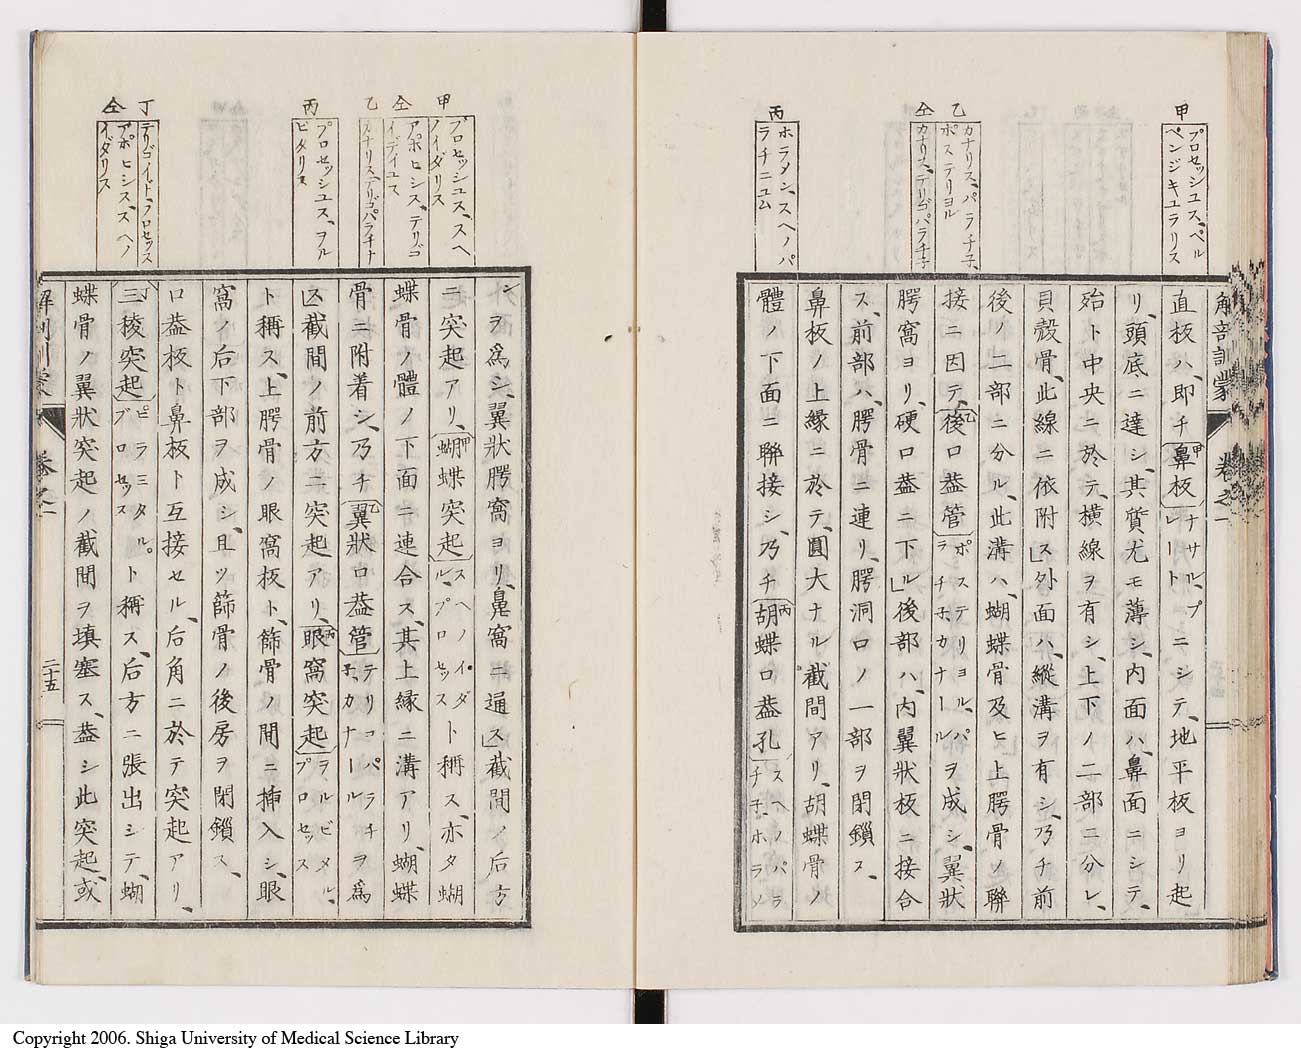 甲
プロセッシュス、ペル
ペンジキユラリス
乙
カナリス、パラチ子、
ポステリヨル
仝
カナリス、テリゴパラチ子
丙
ホラメン、スヘノパ
ラチニユム
解剖訓蒙
卷之一
直板ハ、即チ鼻板ナサル、プレートニシテ、地平板ヨリ起
リ、頭底ニ達シ、其質尤モ薄シ、内面ハ、鼻面ニシテ、
殆ト中央ニ於テ、横線ヲ有シ、上下ノ二部ニ分レ、
貝殼骨、此線ニ依附ス」外面ハ、縱溝ヲ有シ、乃チ前
後ノ二部ニ分ル、此溝ハ、蝴蝶骨及ヒ上腭骨ノ聯
接ニ因テ、乙後口葢管ポステリヨル、パラチ子、カナールヲ成シ、翼狀
腭窩ヨリ、硬口葢ニ下ル」後部ハ、内翼狀板ニ接合
ス、前部ハ、腭骨ニ連リ、腭洞口ノ一部ヲ閉鎖ス、
鼻板ノ上縁ニ於テ、圓大ナル截間アリ、胡蝶骨ノ
體ノ下面ニ聯接シ、乃チ丙胡蝶口葢孔スヘノパラチ子、ホラメン
甲
プロセッシュス、スヘ
ノイダリス
仝
アポヒシス、テリゴ
イデイユス
乙
カナリス、テリゴパラチナ
丙
プロセッシュス、ヲル
ビタリス
丁
テリゴイド、プロセッス
仝
アポヒシス、スヘノ
イダリス
シヲ爲シ、翼狀腭窩ヨリ、鼻窩ニ通ス」截間ノ后方
ニ突起アリ、甲蝴蝶突起スヘノイダル、プロセッスト稱ス、亦タ蝴
蝶骨ノ體ノ下面ニ連合ス、其上縁ニ溝アリ、蝴蝶
骨ニ附着シ、乃チ乙翼狀口葢管テリコパラチ子、カナールヲ爲
ス」截間ノ前方ニ突起アリ、丙眼窩突起ヲルビタル、プロセッス
ト稱ス、上腭骨ノ眼窩板ト、篩骨ノ間ニ挿入シ、眼
窩ノ后下部ヲ成シ、且ツ篩骨ノ後房ヲ閉鎖ス、
口葢板ト鼻板ト互接セル、后角ニ於テ突起アリ、
丁三棱突起ピラミタル。プロセッスト稱ス、后方ニ張出シテ、蝴
蝶骨ノ翼狀突起ノ截間ヲ填塞ス、葢シ此突起、或
解剖訓蒙
卷之一
二十五
Copyright 2006. Shiga University of Medical Science Library